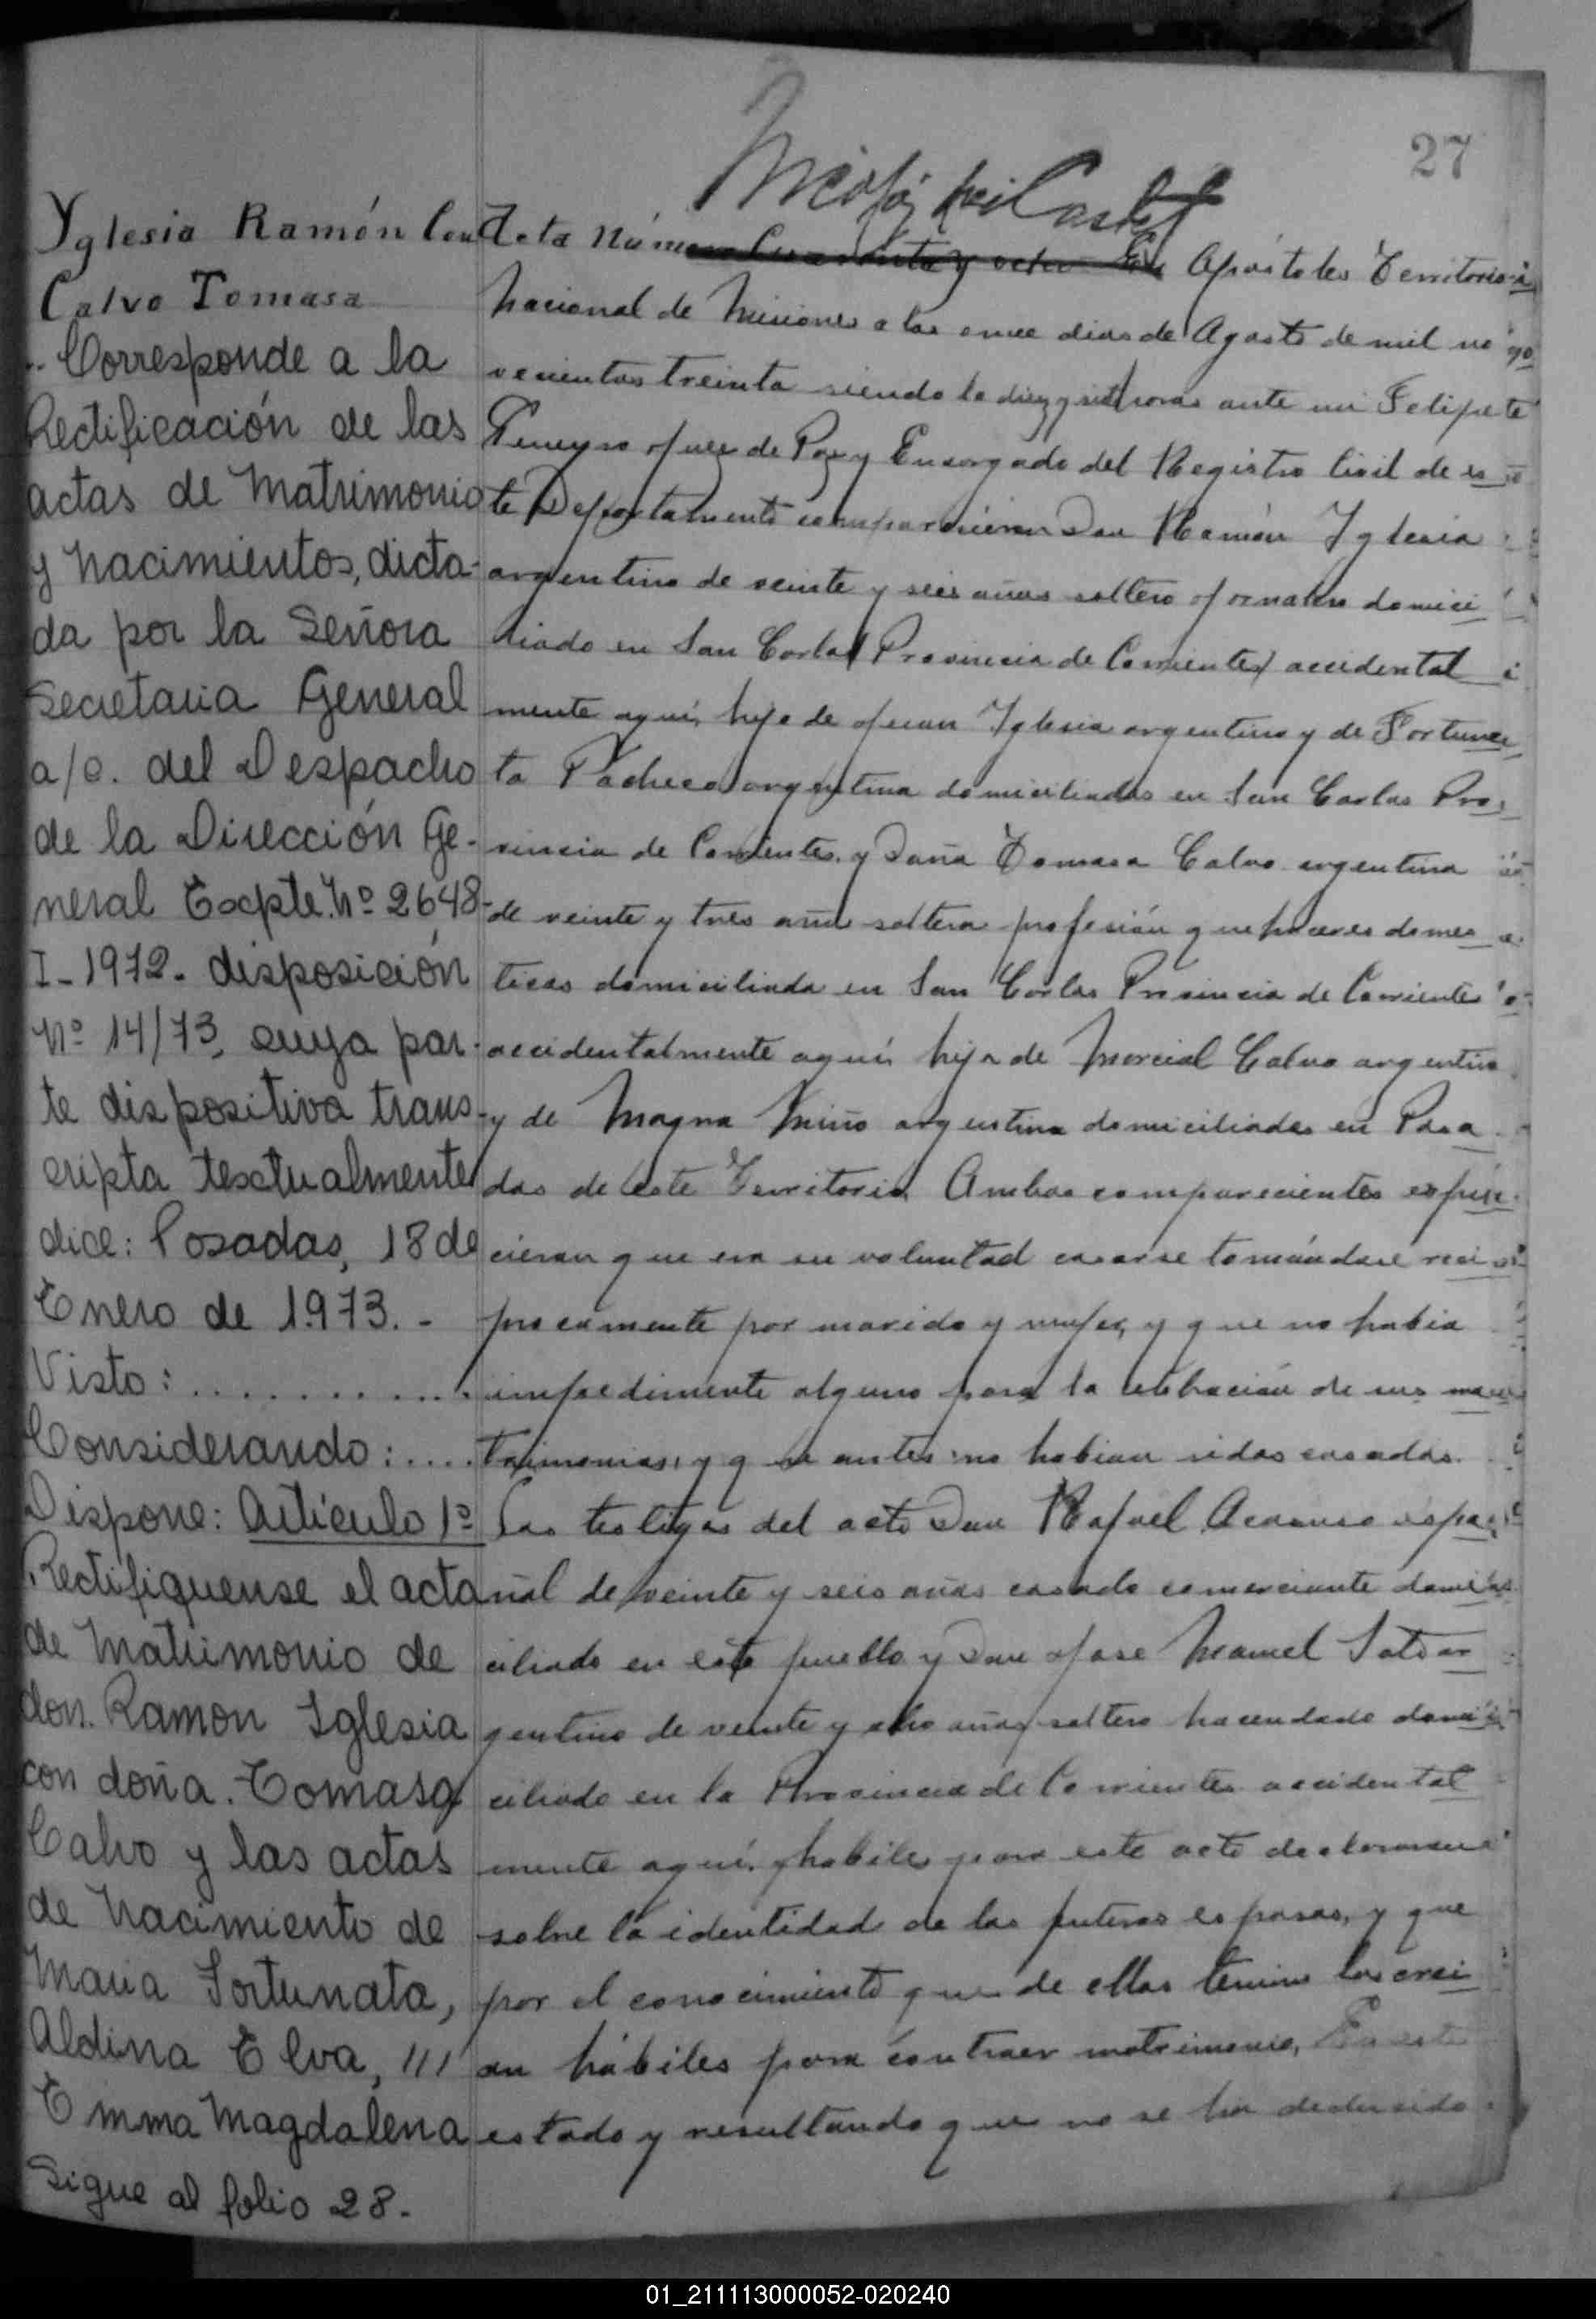 27
Yglesia Ramón Con
Calvo Tomasa
Corresponde a la
Rectificación de las
actas de Matrimonio
y Nacimientos, dicta-
da por la Señora
Secretaria General
a/c. del Despacho
de la Dirección Ge-
neral Expte. Nº 2648-
I-1972. disposición
Nº 14/73, cuya par-
te dispositiva trans-
cripta textualmente
dice: Posadas, 18 de
Enero de 1973.-
Visto: ...........
Considerando: ....
Dispone: Artículo 1º
Rectifiquense el acta
de Matrimonio de
don. Ramon Iglesia
con doña. Tomasa
Calvo y las actas
de Nacimiento de
Maria Fortunata,
Aldina Elva, ///
Emma Magdalena
Sigue al folio 28.-
Acta Número Cuarenta y ocho En Apóstoles Territorio
Nacional de Misiones a los once dias de Agosto de mil no
vecientos treinta siendo la diez y siete horas ante mi Felipe
Juez de Paz y Encargado del Registro Civil de es
te Departamento comparecieron Don Ramón Yglesia
argentino de veinte y seis años soltero jornalero domici
liado en San Carlos Provincia de Corrientes accidental
mente aquí, hijo de Juan Yglesia argentino y de Fortuna
ta Pacheco argentina domiciliados en San Carlos Pro
vincia de Corrientes, y Doña Tomasa Calvo argentina
de veinte y tres años soltera profesión quehaceres domes
ticos domiciliada en San Carlos Provincia de Corrientes
accidentalmente aquí, hija de Marcial Calvo argentino
y de Magna Miño argentina domiciliados en Posa
das de este Territorio, Ambos comparecientes
que era su voluntad casarse tomándose reci
procamente por marido y mujer, y que no habia
impedimento alguno para la celebración de sus ma
trimonios, y que antes no habian sidos casados.
Los testigos del acto Don Rafael espa
ñol de veinte y seis años casado comerciante domi
ciliado en este pueblo y Don Jose Manuel Soto ar
gentino de veinte y ocho años soltero hacendado domi
ciliado en la Provincia de Corrientes accidental
mente aquí, y habiles para este acto declararon
sobre la identidad de los futuros esposos, y que
por el conocimiento que de ellos tenian los crei
an hábiles para contraer matrimonio, En este
estado y resultando que no se ha deducido
01_211113000052-020240